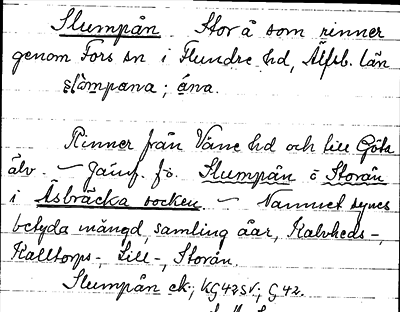 Slumpån Stor å som rinner
genom Fors sn i Flundre hd, Älfsb. län
slòmpana; ána.
Rinner från Väne hd och till Göta
älv. — Jämf. fö. Slumpån o Storån
i Åsbräcka socken. — Namnet synes
betyda mängd, samling åar, Kalvheds-,
Kalltorps-, Lill-, Storån.
Slumpån ek; KG42SV; G42.